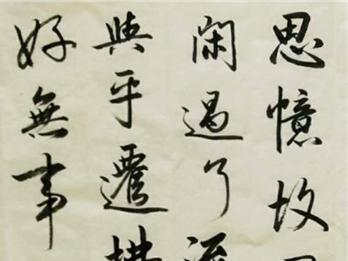 思憶故
閑過了
與平遷
好無事